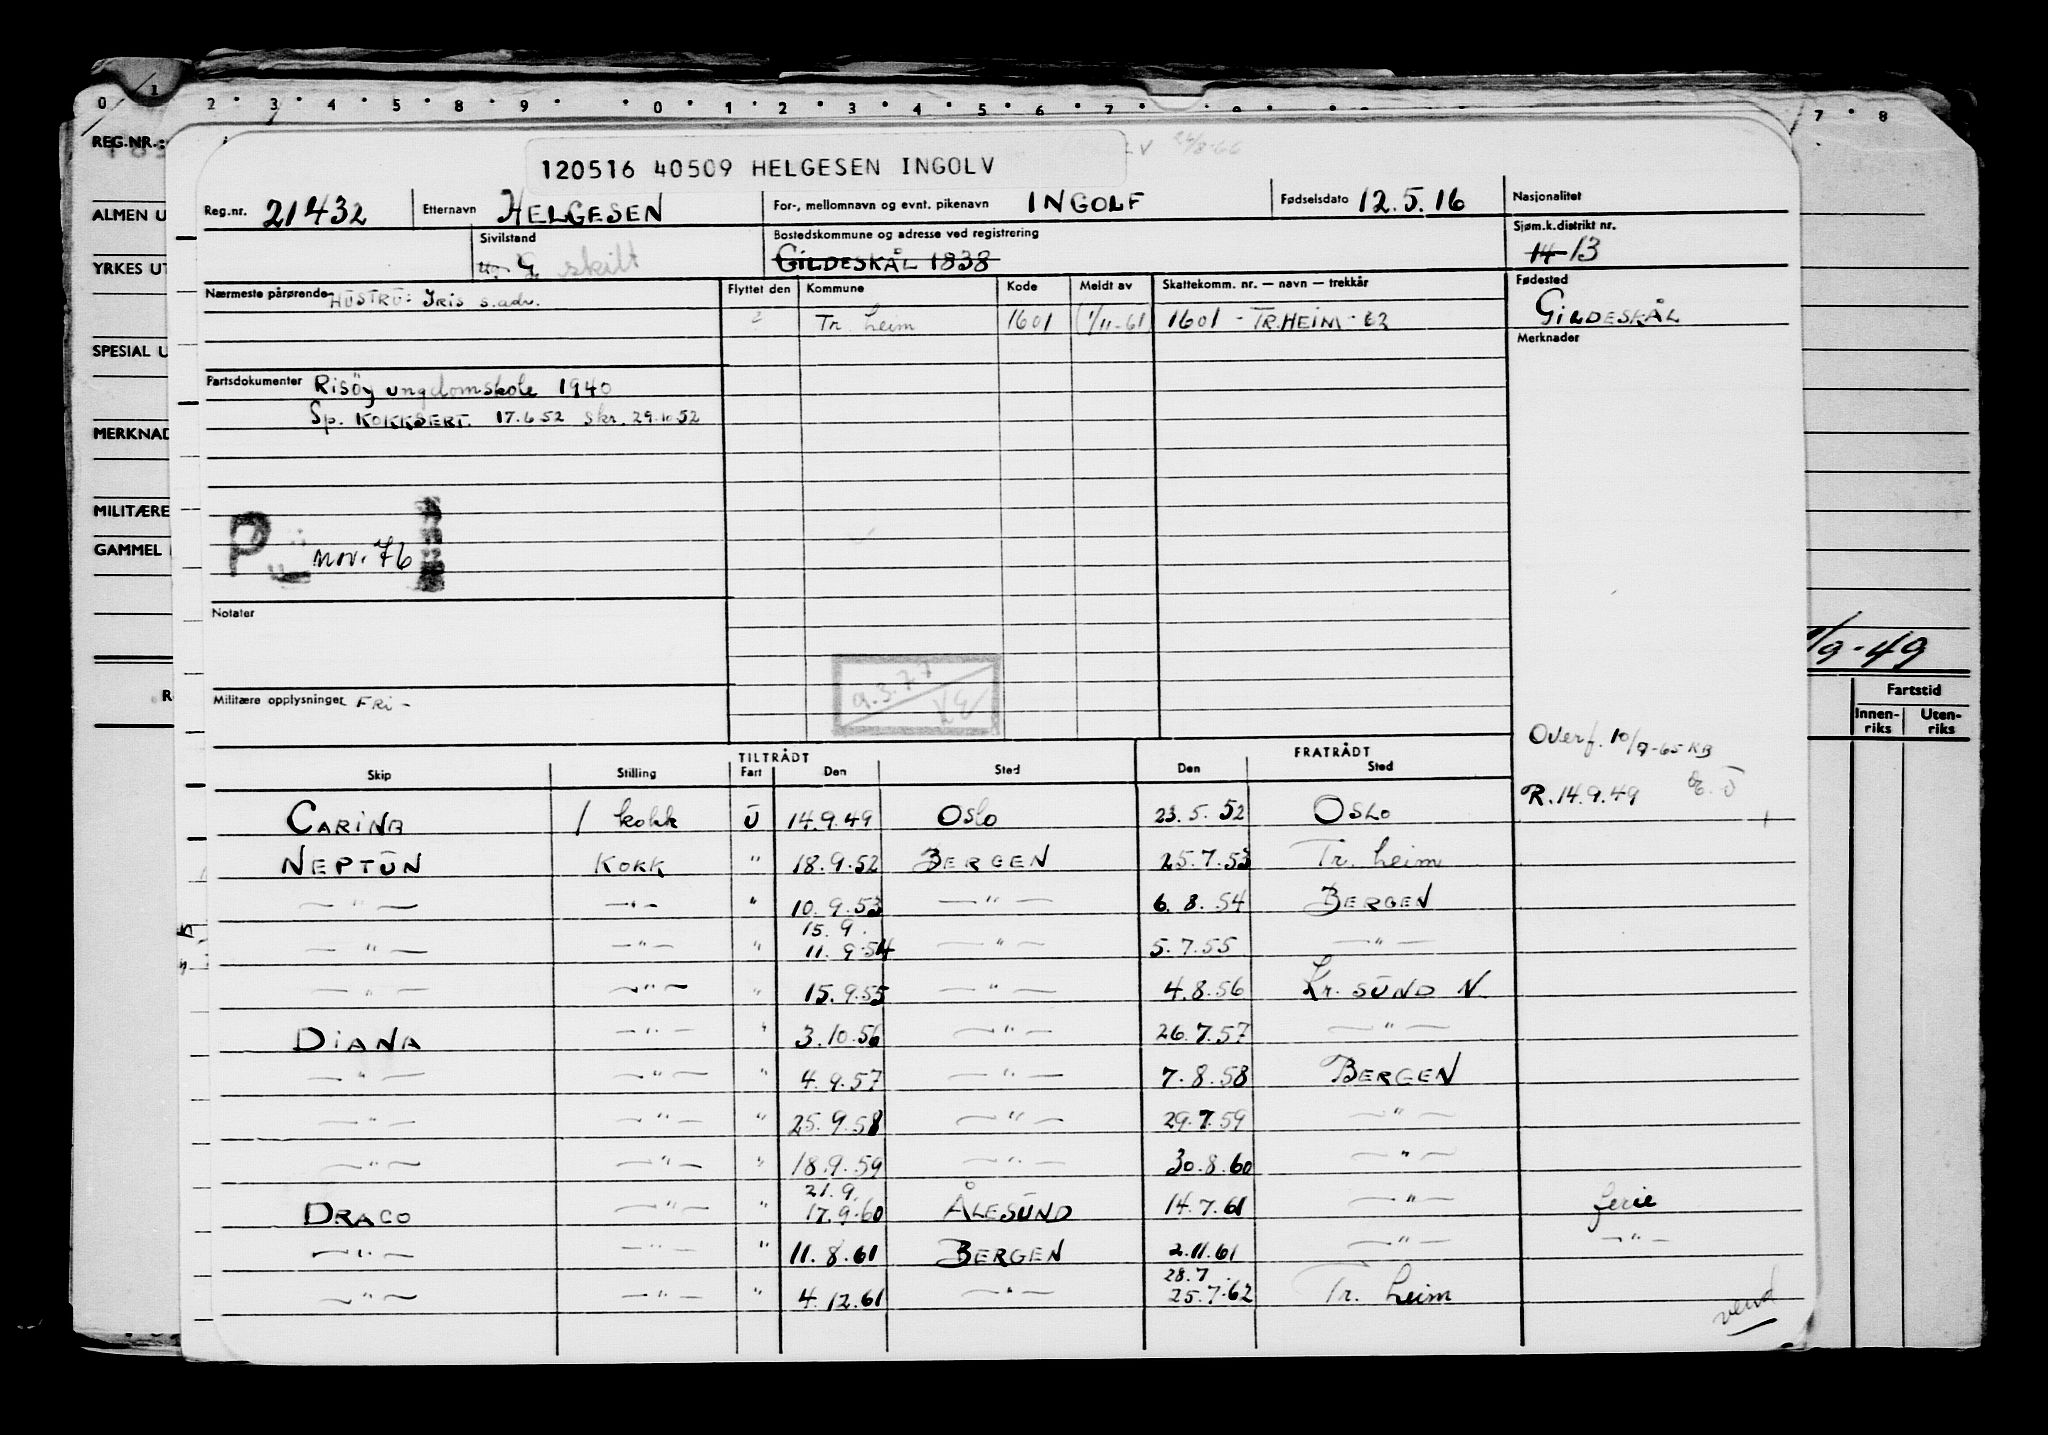 0 1 2 3 4 5 8 9 0 1 2 3 4 5 6 7 9 7 8
REG.NR.:
120516 40509 HELGESEN INGOLV
Reg.nr. 21432 Etternavn HELGESEN For-, mellomnavn og evnt. pikenavn INGOLF Fødselsdato 12.5.16 Nasjonalitet
ALMEN U
Sivilstand G skilt Bostedskommune og adresse ved registrering GILDESKÅL 1838 Sjøm.k.distrikt nr. 14 13
YRKES UT
Nærmeste pårørende HUSTRU: IRIS s.adr. Flyttet den Kommune Kode Meldt av Skattekomm. nr. — navn — trekkår Fødested GILDESKÅL
Tr. heim 1601 1/11-61 1601 - TR.HEIM - 62
Merknader
SPESIAL U
Fartsdokumenter Risöy ungdomskole 1940
Sp. KOKKSERT. 17.6.52 Skr. 29.10.52
MERKNAD
MILITÆRE
GAMMEL
P nov. 76
Notater
1/9-49
9.3.77
Militære opplysninger FRI -
R
Fartstid
Innen-riks Uten-riks
Overf. 10/9-65 KB
R. 14.9.49
TILTRÅDT FRATRÅDT
Skip Stilling Fart Den Sted Den Sted
CARINA / kokk U 14.9.49 OSLO 23.5.52 OSLO
NEPTUN KOKK " 18.9.52 BERGEN 25.7.53 Tr. heim
— " — — " — " 10.9.53 — " — 6.8.54 BERGEN
15.9.
— " — — " — " 11.9.54 — " — 5.7.55 — " —
— " — — " — " 15.9.55 — " — 4.8.56 Kr. SUND N.
DIANA — " — " 3.10.56 — " — 26.7.57 — " —
— " — — " — " 4.9.57 — " — 7.8.58 BERGEN
— " — — " — " 25.9.58 — " — 29.7.59 — " —
— " — — " — " 18.9.59 — " — 30.8.60 — " —
21.9.
DRACO — " — " 17.9.60 ÅLESUND 14.7.61 — " — ferie
— " — — " — " 11.8.61 BERGEN 2.11.61 — " — — " —
28.7.
— " — — " — " 4.12.61 — " — 25.7.62 Tr. heim
vend